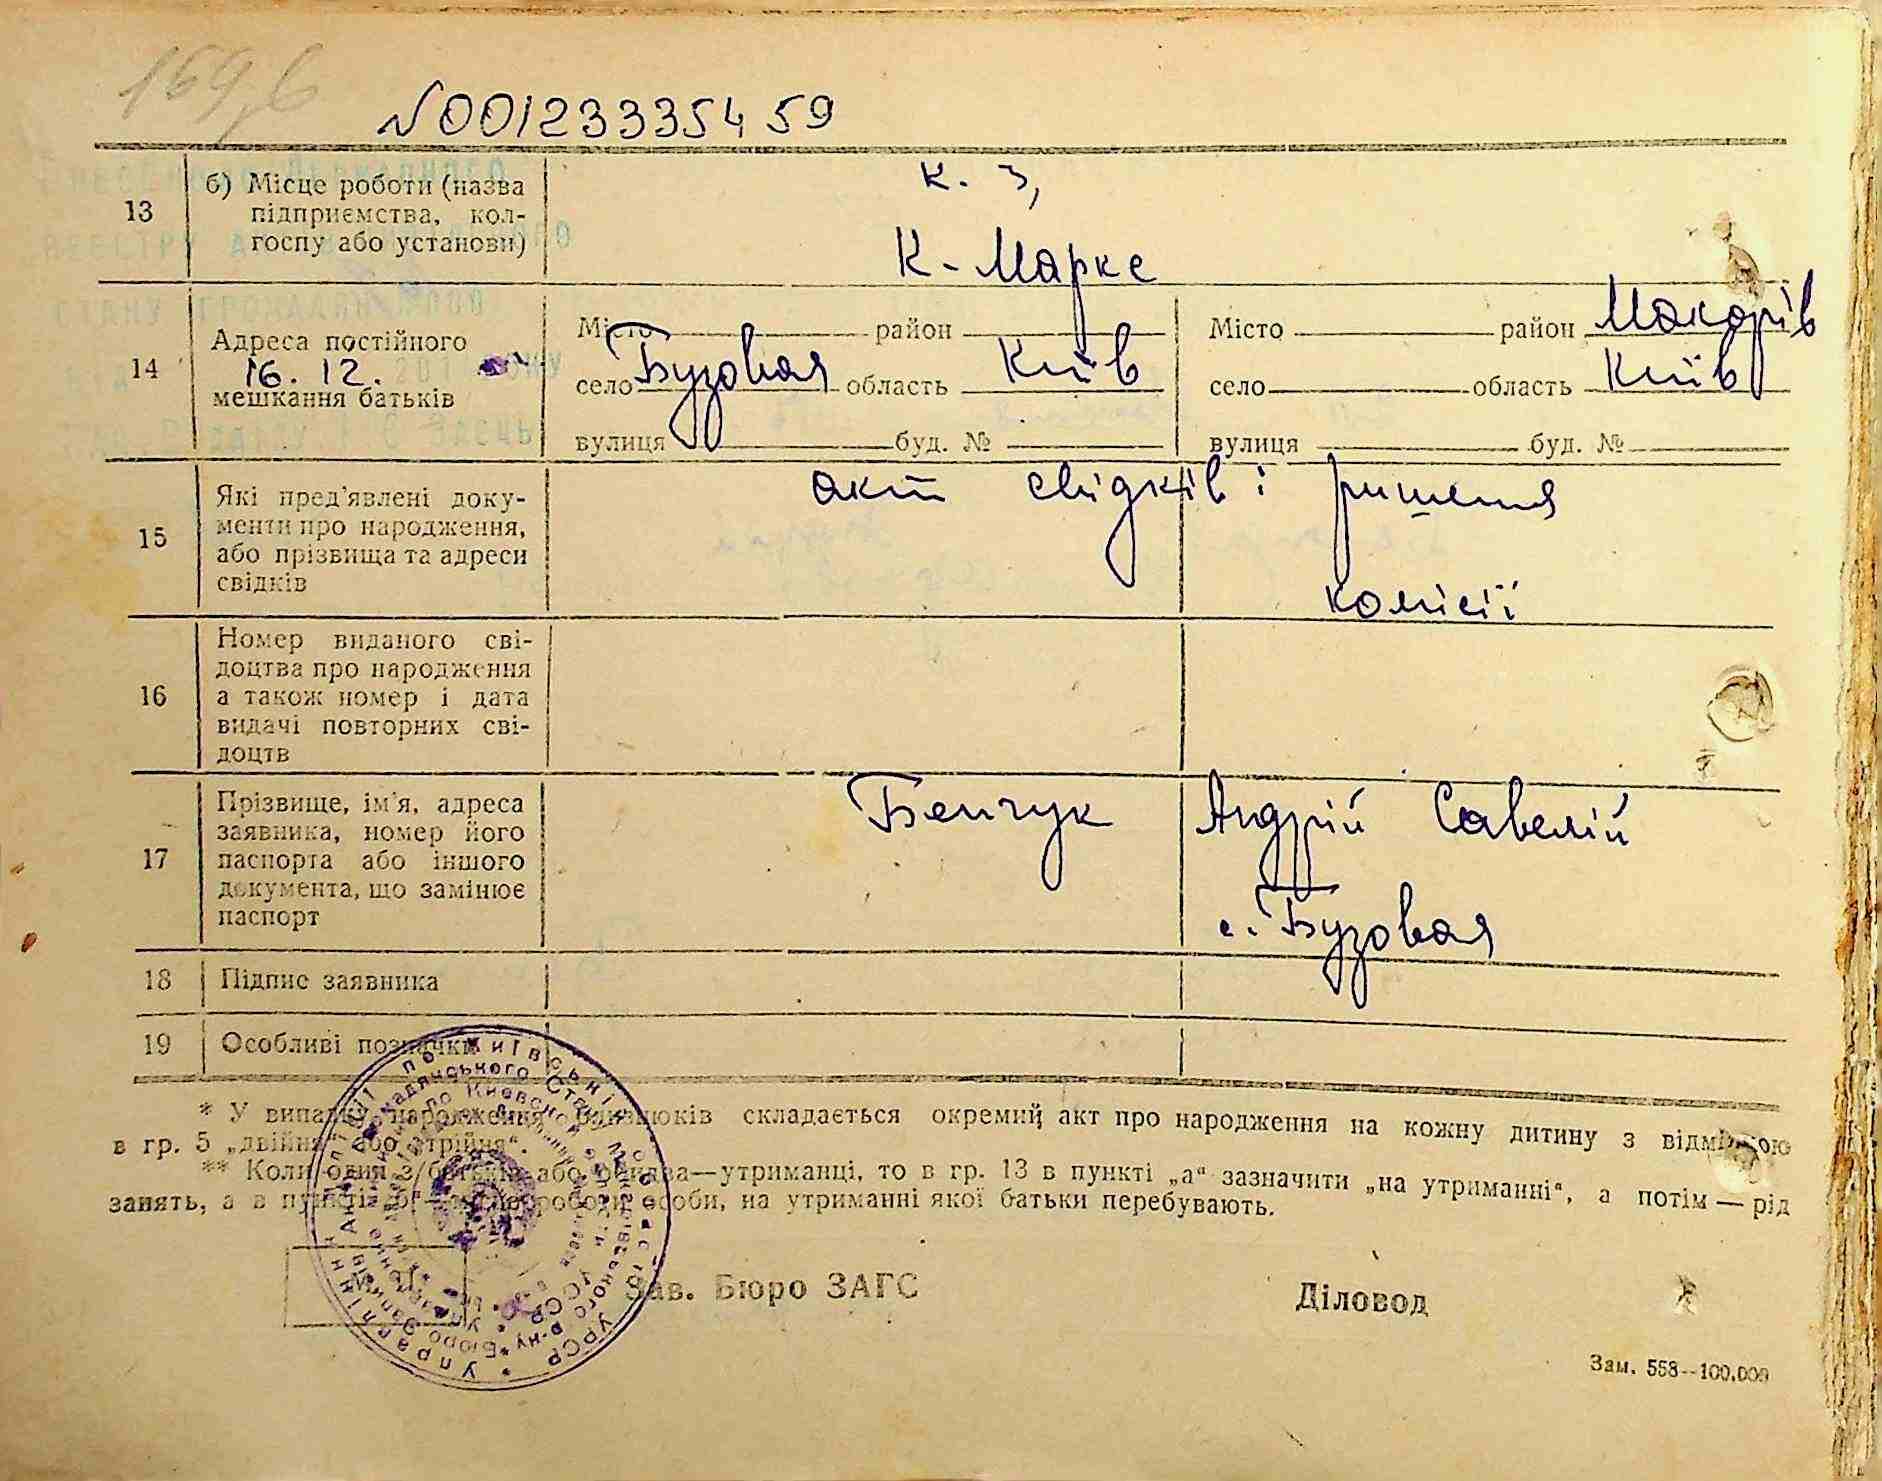 169,б
N00123335459
13
б) Місце роботи (назва
підприємства, кол-
госпу або установи)
к. з,
К-Маркс
14
Адреса постійного
16. 12.
мешкання батьків
Місто район
село Бузовая область Київ
вулиця буд. №
Місто район Макарів
село область Київ
вулиця буд. №
15
Які пред'явлені доку-
менти про народження,
або прізвища та адреси
свідків
акт свідків і ришення
комісії
16
Номер виданого сві-
доцтва про народження
а також номер і дата
видачі повторних сві-
доцтв
17
Прізвище, ім'я, адреса
заявника, номер його
паспорта або іншого
документа, що замінює
паспорт
Бенчук Андрій Савелій
с. Бузовая
18
Підпис заявника
19
Особливі позначки
* У випадку народження близнюків складається окремий акт про народження на кожну дитину з відміткою
в гр. 5 „двійня“ або „трійня“.
** Коли один з батьків або обидва—утриманці, то в гр. 13 в пункті „а“ зазначити „на утриманні“, а потім — рід
занять, а в пункті „б“—місце роботи особи, на утриманні якої батьки перебувають.
М. П.
Зав. Бюро ЗАГС
Діловод
Зам. 558--100.000